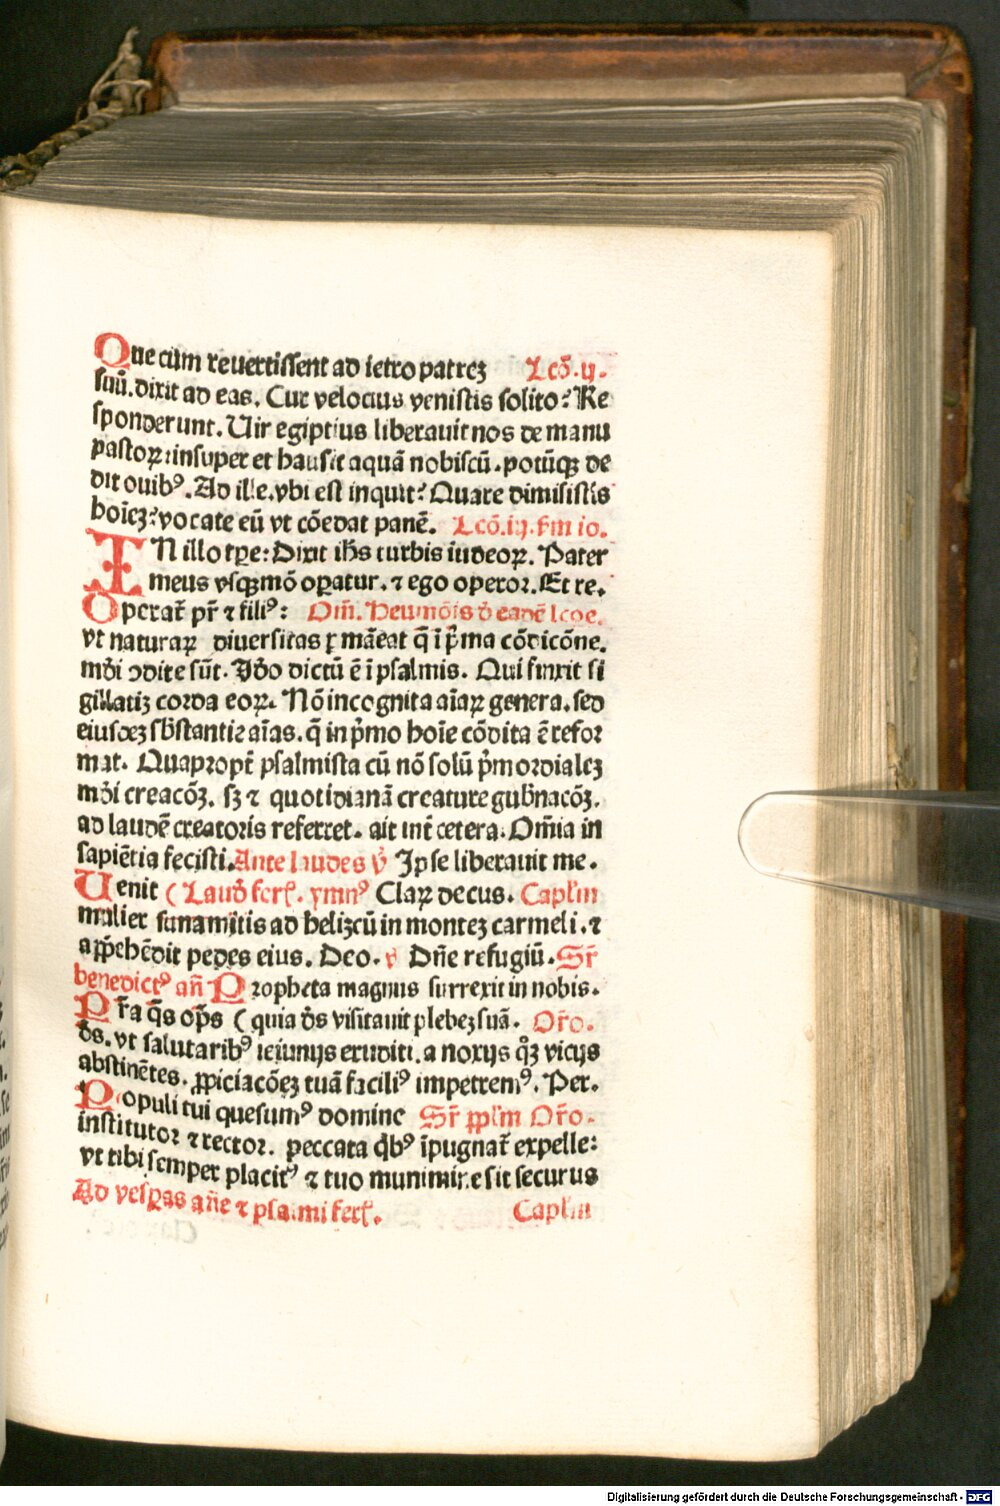 Que cum reuertissent ad ietro patreʒ Lcō.ij.
suū.dixit ad eas. Cur velocius venistis solito? Re
sponderunt. Uir egiptius liberauit nos de manu
pastoꝝ: insuper et hausit aquā nobiscū. potūqꝫ de
dit ouibꝰ. Ad ille. vbi est inquit? Quare dimisistis
hoīeʒ? vocate eū vt cōedat panē. Lcō.iij. fm io.
IN illo tꝑe: Dixit ihs turbis iudeoꝝ. Pater
meus vsqꝫ mō oꝑatur. ⁊ ego operoꝛ. Et re.
Operat̄ pr̄ ⁊ filiꝰ: Om̄. Heumōis d̄ eadē lcōe.
vt naturaꝝ diuersitas ꝑmāeat q̄ ī p̄ma cōdicōne.
mūdi ꝯdite sūt. Ad̄o dictū ē ī psalmis. Qui finxit si
gillatiʒ corda eoꝝ. Nō incognita aīaꝝ genera. sed
eiusdeʒ sb̄stantie aīas. q̄ in p̄mo hoīe cōdita ē refoꝛ
mat. Quapꝛopt̄ psalmista cū nō solū p̄moꝛdialeʒ
mūdi creacōʒ. sʒ ⁊ quotidianā creature gub̄nacōʒ.
ad laudē creatoris referret. ait int̄ cetera. Om̄ia in
sapiētia fecisti. Ante laudes ꝟ Ipse liberauit me.
Uenit ( Laud̄ ferꝭ. ymnꝰ Claꝝ decus. Capl̄m
mulier sunamitis ad helizeū in monteʒ carmeli. ⁊
apꝑhēdit pedes eius. Deo. ꝟ Dn̄e refugiū. Sr̄
benedictꝰ an̄ Propheta magnus surrexit in nobis.
Pr̄a q̄s oп̄ps ( quia d̄s visitauit plebeʒ suā. Oꝛ̄o.
d̄s. vt salutaribꝰ ieiunijs eruditi. a noxijs qꝫ vicijs
abstinētes. ꝓpiciacōeʒ tuā faciliꝰ impetremꝰ. Per.
Populi tui quesumꝰ domine Sr̄ ppl̄m Oꝛ̄o.
institutoꝛ ⁊ rectoꝛ. peccata q̄bꝰ īpugnat̄ expelle:
vt tibi semper placitꝰ ⁊ tuo munimine sit securus
Ad vesꝑas an̄e ⁊ psalmi ferꝭ. Capl̄m
Digitalisierung gefördert durch die Deutsche Forschungsgemeinschaft - DFG